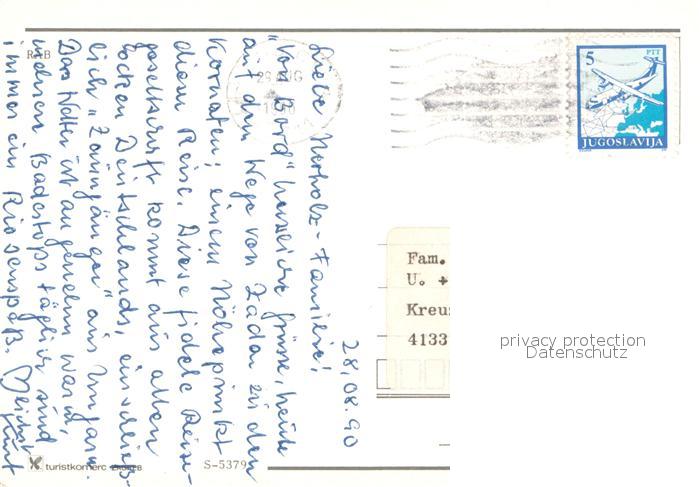 RAB
28.08.90
Liebe Nerholz-Familie!
"Von Bord" herzliche Grüsse, heute
auf dem Wege von Zadar zu den
Kornaten; einem Höhepunkt
dieser Reise. Diese fidele Reise-
gesellschaft kommt aus allen
Ecken Deutschlands, einschließ-
lich "Zaungänger" aus Ungarn.
Das Wetter ist angenehm warm,
mehrere Badestops täglich sind
immer ein Riesenspaß.
Kurt
29
PTT
5
JUGOSLAVIJA
Fam.
U. +
Kreu
4133
privacy protection
Datenschutz
turistkomerc ZAGREB
S-5379